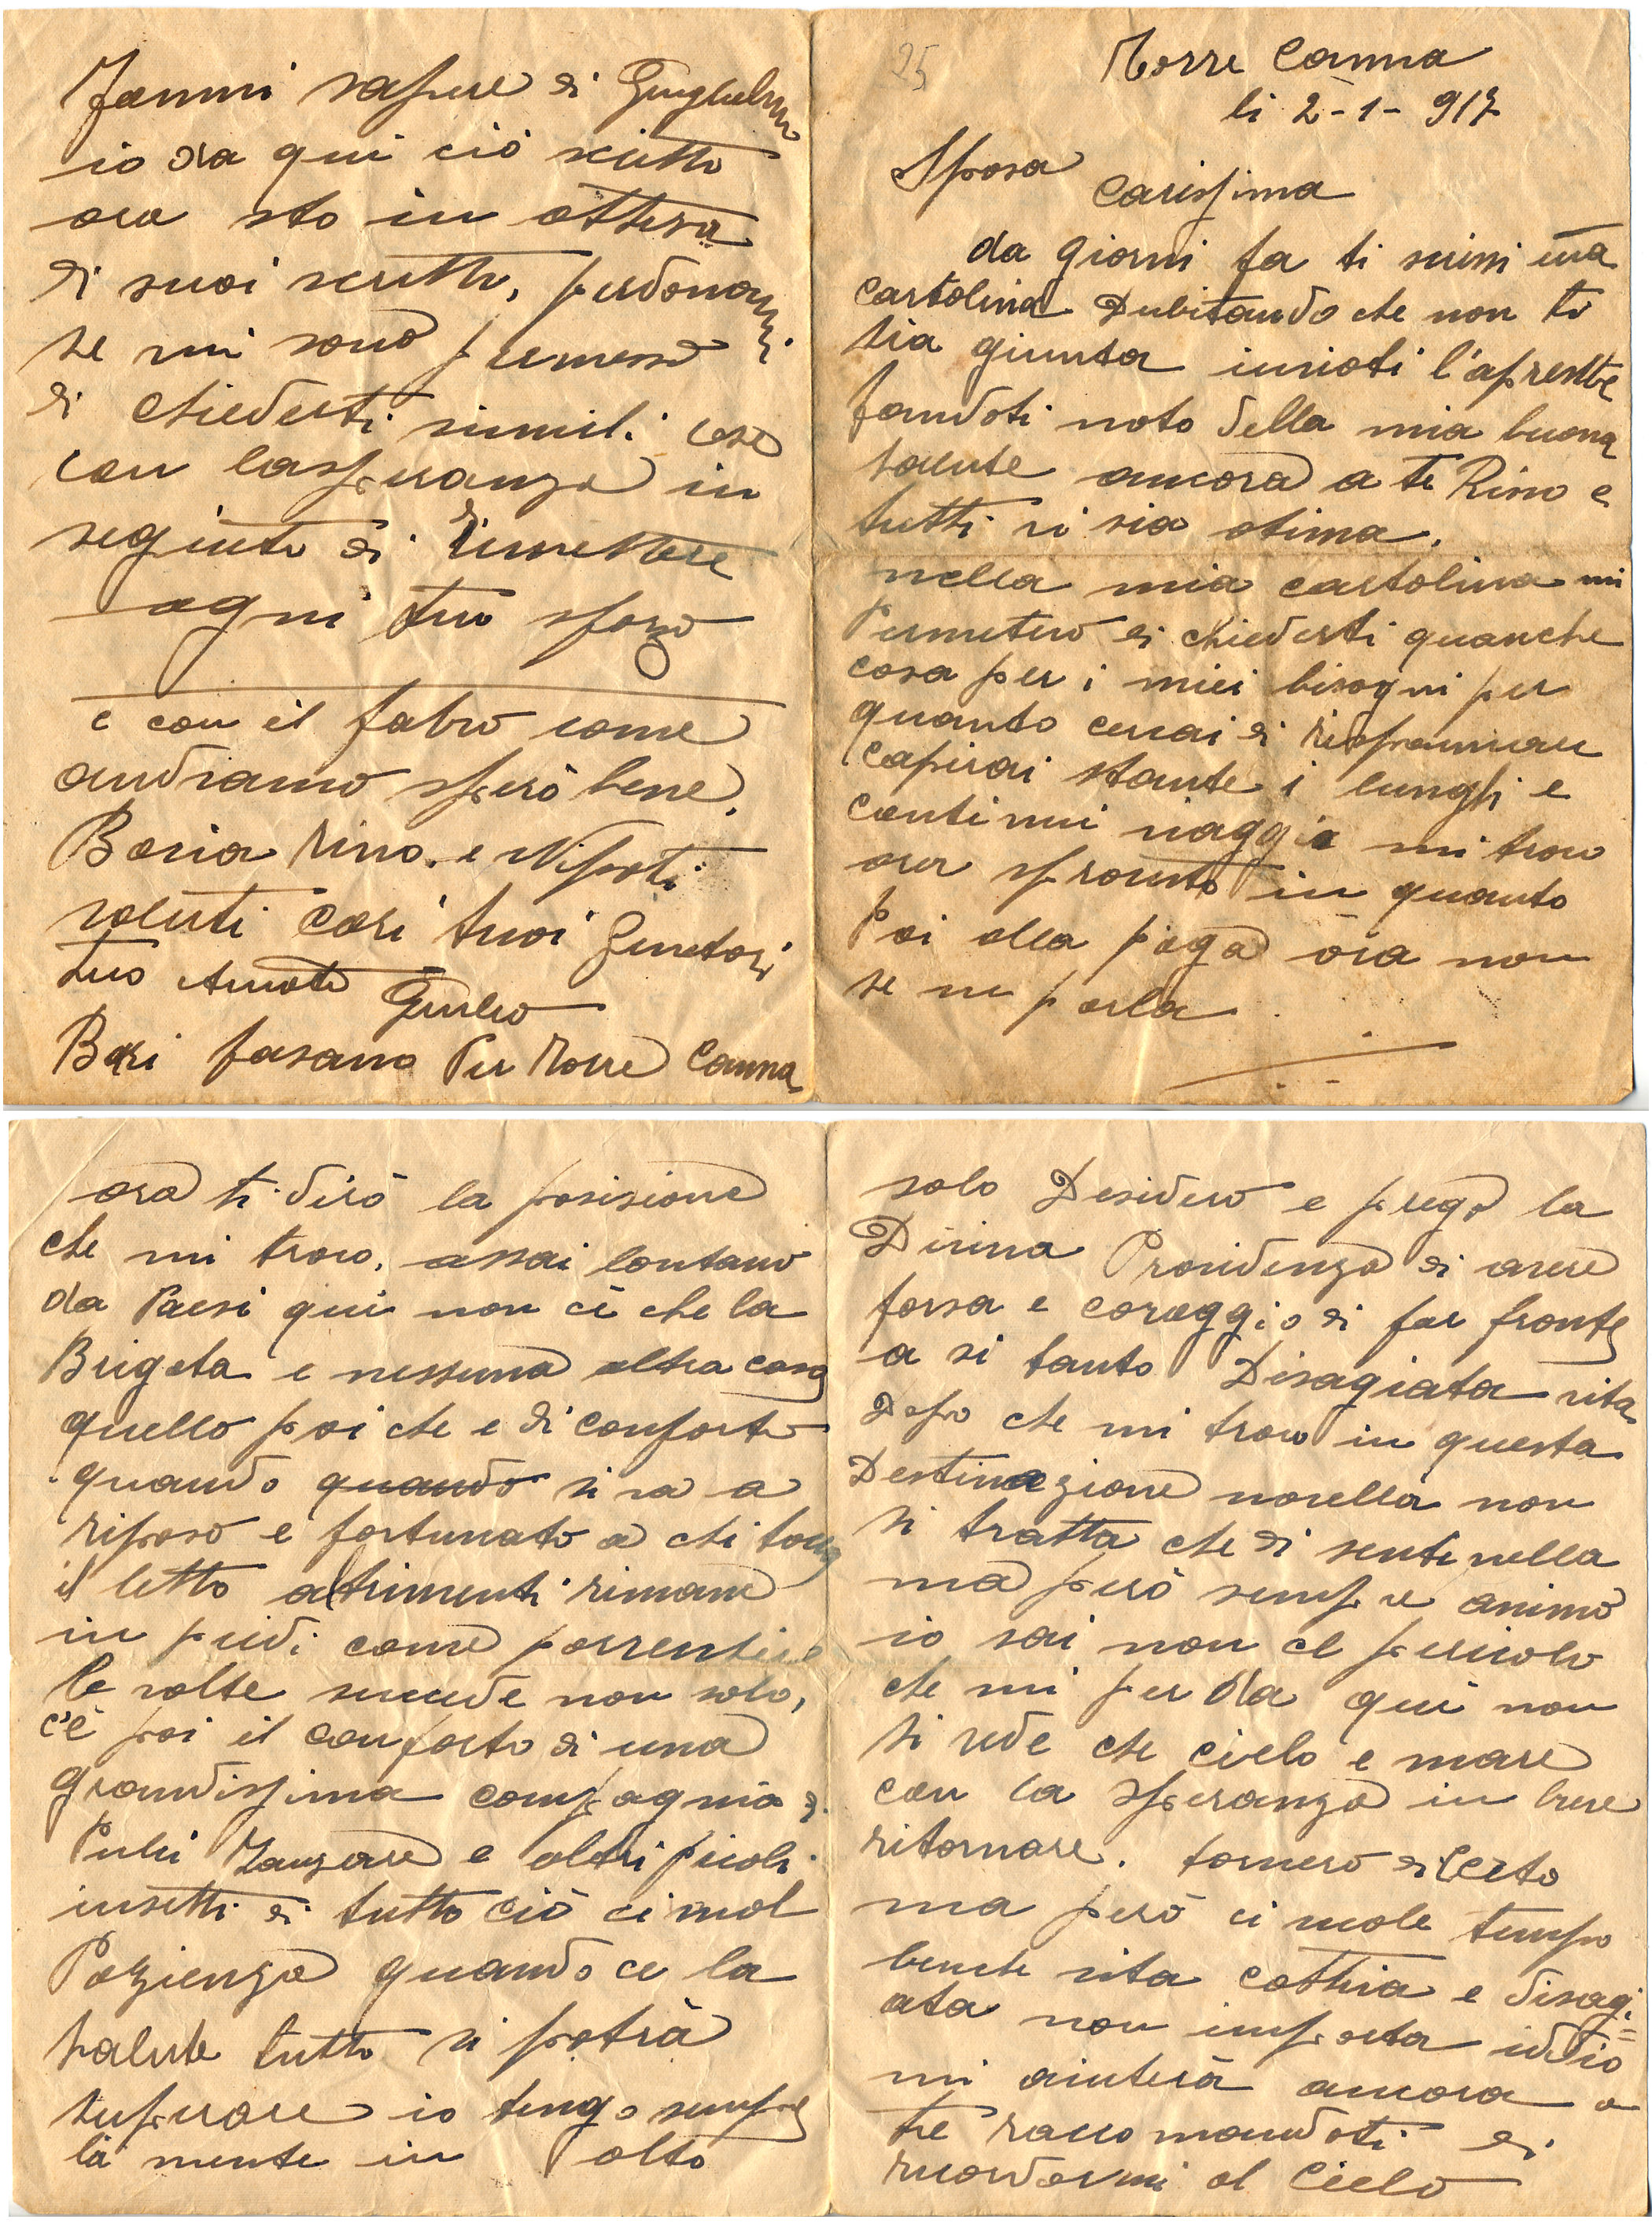 25
Torre Canna
li 2-1-917
Sposa
Carissima
da giorni fa ti scrissi una
Cartolina Dubitando che non ti
sia giunta invioti l'apresente
fandoti noto della mia buona
salute ancora a te Rino e
tutti vi sia otima.
nella mia cartolina mi
Permetevo di chiederti quanche
cosa per i miei bisogni per
quanto cercai di risparmiare
Capirai stante i lunghi e
continui viaggi mi trovo
ora sprovisto in quanto
Poi alla paga ora non
se ne parla
ora ti dirò la posisione
che mi trovo, assai lontano
da Paesi qui non cè che la
Brigata e nessuna altra casa
quello poi che e di conforto
quando quando si va a
riposo e fortunato a chi tocca
il letto altrimenti rimane
in piedi come
le volte succede non solo,
c'è poi il conforto di una
grandissima compagnia di
Pulci Zanzare e altri picoli
insetti di tutto ciò ci vuol
Pazienza quando ce la
salute tutto si potrà
superare io tengo sempre
la mente in alto
solo Desidero e prego la
Divina Providenza di avere
forsa e coraggio di far fronte
a si tanto Disagiata vita
Dopo che mi trovo in questa
Destinazione novella non
si tratta che di sentinella
ma però sempre animo
io sai non ce pericolo
che mi perda qui non
si vede che cielo e mare
con la speranza in breve
ritornare. tornerò di certo
ma però ci vuole tempo
benche vita cattiva e disagi=
ata non importa iddio
mi aiuterà ancora a
te raccomandoti di
ricordarmi al Cielo
Fammi sapere di Guglielmo
io da qui ciò scritto
ora sto in attesa
di suoi scritti, perdonami
se mi sono permesso
di chiederti simili cose
con lasperanza in
seguito di rimettere
ogni tuo sforzo
e con il fabro come
andiamo sperò bene.
Bacia Rino e Nipoti
saluti Cari tuoi Genitori
tuo Amato Giulio
Bari fasano Per Torre Canna